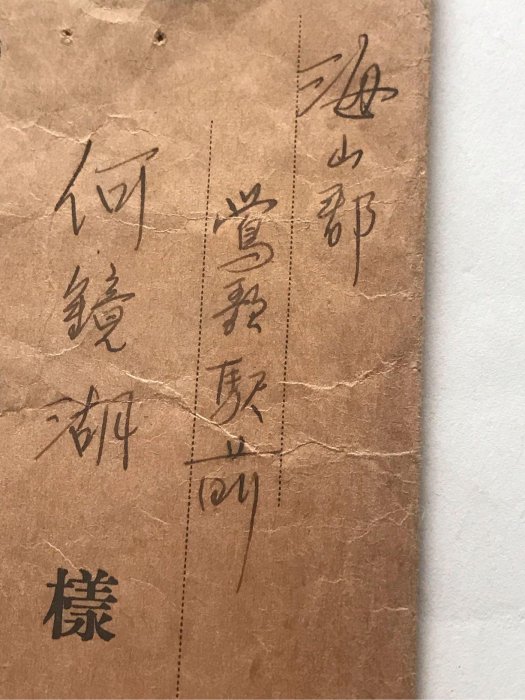 海山郡
鶯歌駅前
何鏡湖
樣